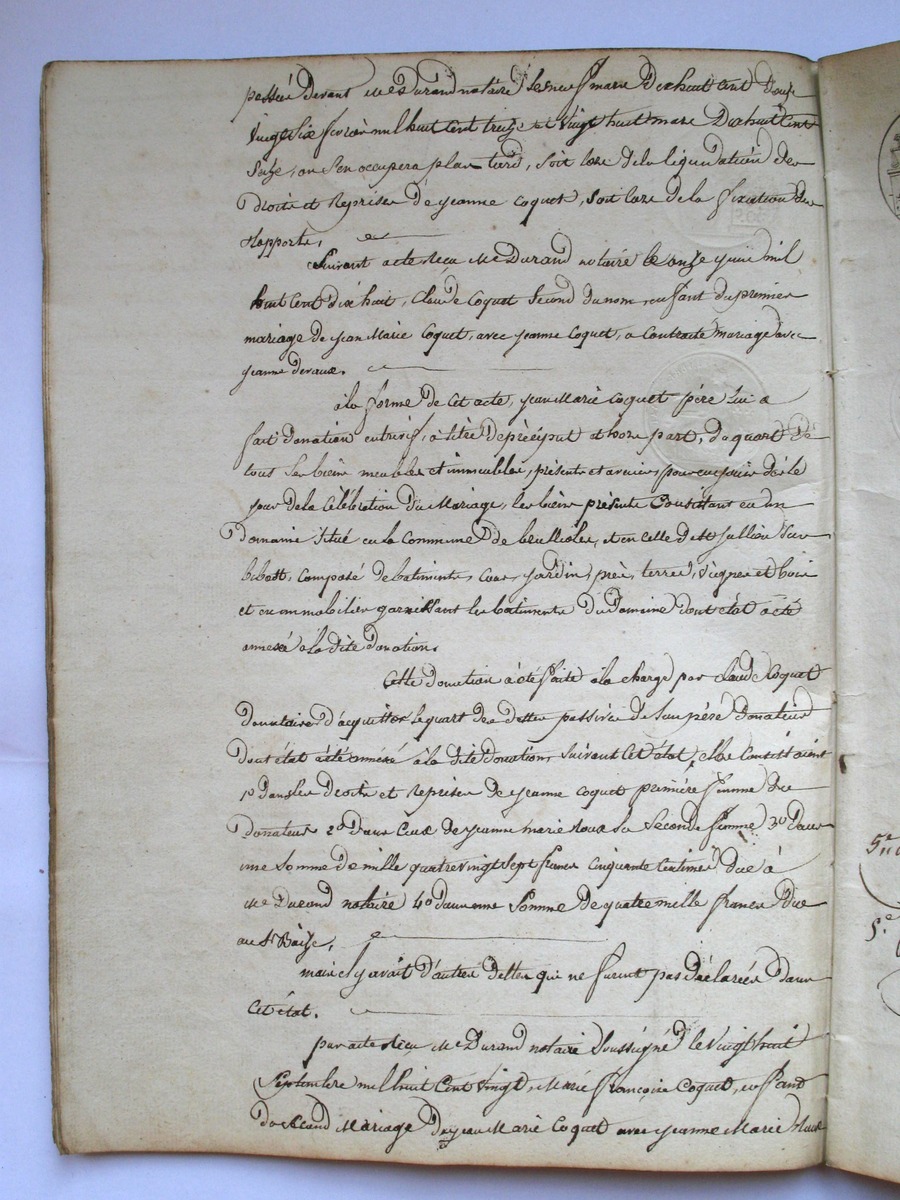 passés devant Me Durand notaire les neuf mars dix huit cent douze
vingt six fevrier mil huit cent treize et vingt huit mars dix huit cent
seize, on s'en occupera plus tard, soit lors de la liquidation des
droits et reprises de jeanne coquet, soit lors de la fixation des
rapports.
Suivant acte reçu Me Durand notaire le onze juin mil
huit cent dix huit, Claude Coquet second du nom enfant du premier
mariage de jean Marie Coquet, avec jeanne Coquet, a contracté mariage avec
jeanne devaux.
à la forme de cet acte, jean Marie Coquet père lui a
fait donation entrevifs, à titre de préciput et hors part, du quart de
tous ses biens meubles et immeubles, présents et avenir, pour en jouir dès le
jour de la célébration du mariage, les biens présents consistans en un
domaine situé en la commune de brullioles, et en celle de St jullien sur
bibost, composé de batiments, cour, jardin, près, terres, vignes et bois
et en immobilier garnissant les batiments du domaine dont état a été
annexé à la dite donation.
Cette donation a été faite à la charge par claude Coquet
donataire d'acquitter le quart des dettes passives de son père donateur
dont état a été annexé à la dite donation, suivant cet état, elles consistaient
1o dans les droits et reprises de jeanne coquet première femme du
donateur 2o dans ceux de jeanne marie roux sa seconde femme 3o dans
une somme de mille quatre vingt sept francs cinquante centimes due à
Me Durand notaire 4o dans une somme de quatre mille francs due
au Sr
mais il y avait d'autres dettes qui ne furent pas déclarées dans
cet état.
par acte reçu Me Durand notaire soussigné le vingt huit
Septembre mil huit cent vingt, Marie françoise Coquet, enfant
du second Mariage de jean Marie Coquet avec jeanne Marie roux
5.e